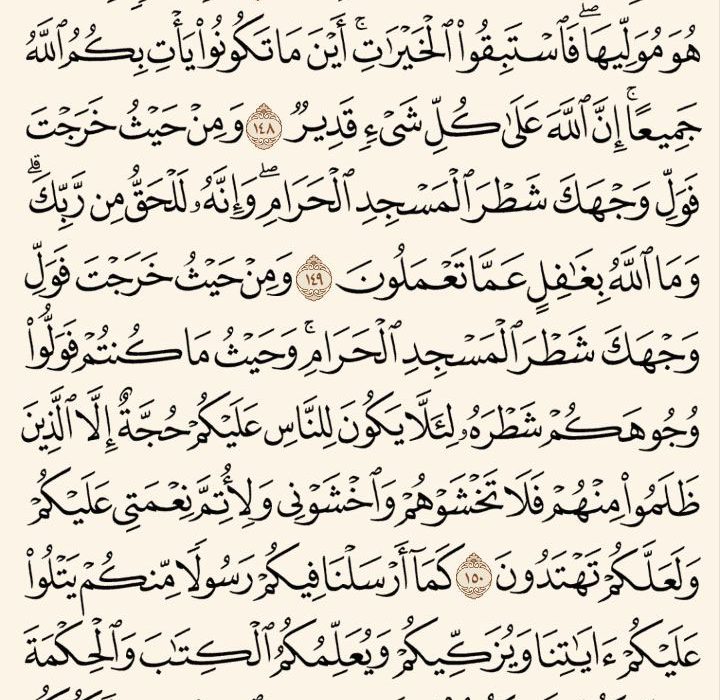 هُوَ مُوَلِّيهَاۖ فَٱسۡتَبِقُواْ ٱلۡخَيۡرَٰتِۚ أَيۡنَ مَا تَكُونُواْ يَأۡتِ بِكُمُ ٱللَّهُ
جَمِيعًاۚ إِنَّ ٱللَّهَ عَلَىٰ كُلِّ شَيۡءٖ قَدِيرٞ ١٤٨ وَمِنۡ حَيۡثُ خَرَجۡتَ
فَوَلِّ وَجۡهَكَ شَطۡرَ ٱلۡمَسۡجِدِ ٱلۡحَرَامِۖ وَإِنَّهُۥ لَلۡحَقُّ مِن رَّبِّكَۗ
وَمَا ٱللَّهُ بِغَٰفِلٍ عَمَّا تَعۡمَلُونَ ١٤٩ وَمِنۡ حَيۡثُ خَرَجۡتَ فَوَلِّ
وَجۡهَكَ شَطۡرَ ٱلۡمَسۡجِدِ ٱلۡحَرَامِۚ وَحَيۡثُ مَا كُنتُمۡ فَوَلُّواْ
وُجُوهَكُمۡ شَطۡرَهُۥ لِئَلَّا يَكُونَ لِلنَّاسِ عَلَيۡكُمۡ حُجَّةٌ إِلَّا ٱلَّذِينَ
ظَلَمُواْ مِنۡهُمۡ فَلَا تَخۡشَوۡهُمۡ وَٱخۡشَوۡنِي وَلِأُتِمَّ نِعۡمَتِي عَلَيۡكُمۡ
وَلَعَلَّكُمۡ تَهۡتَدُونَ ١٥٠ كَمَآ أَرۡسَلۡنَا فِيكُمۡ رَسُولٗا مِّنكُمۡ يَتۡلُواْ
عَلَيۡكُمۡ ءَايَٰتِنَا وَيُزَكِّيكُمۡ وَيُعَلِّمُكُمُ ٱلۡكِتَٰبَ وَٱلۡحِكۡمَةَ